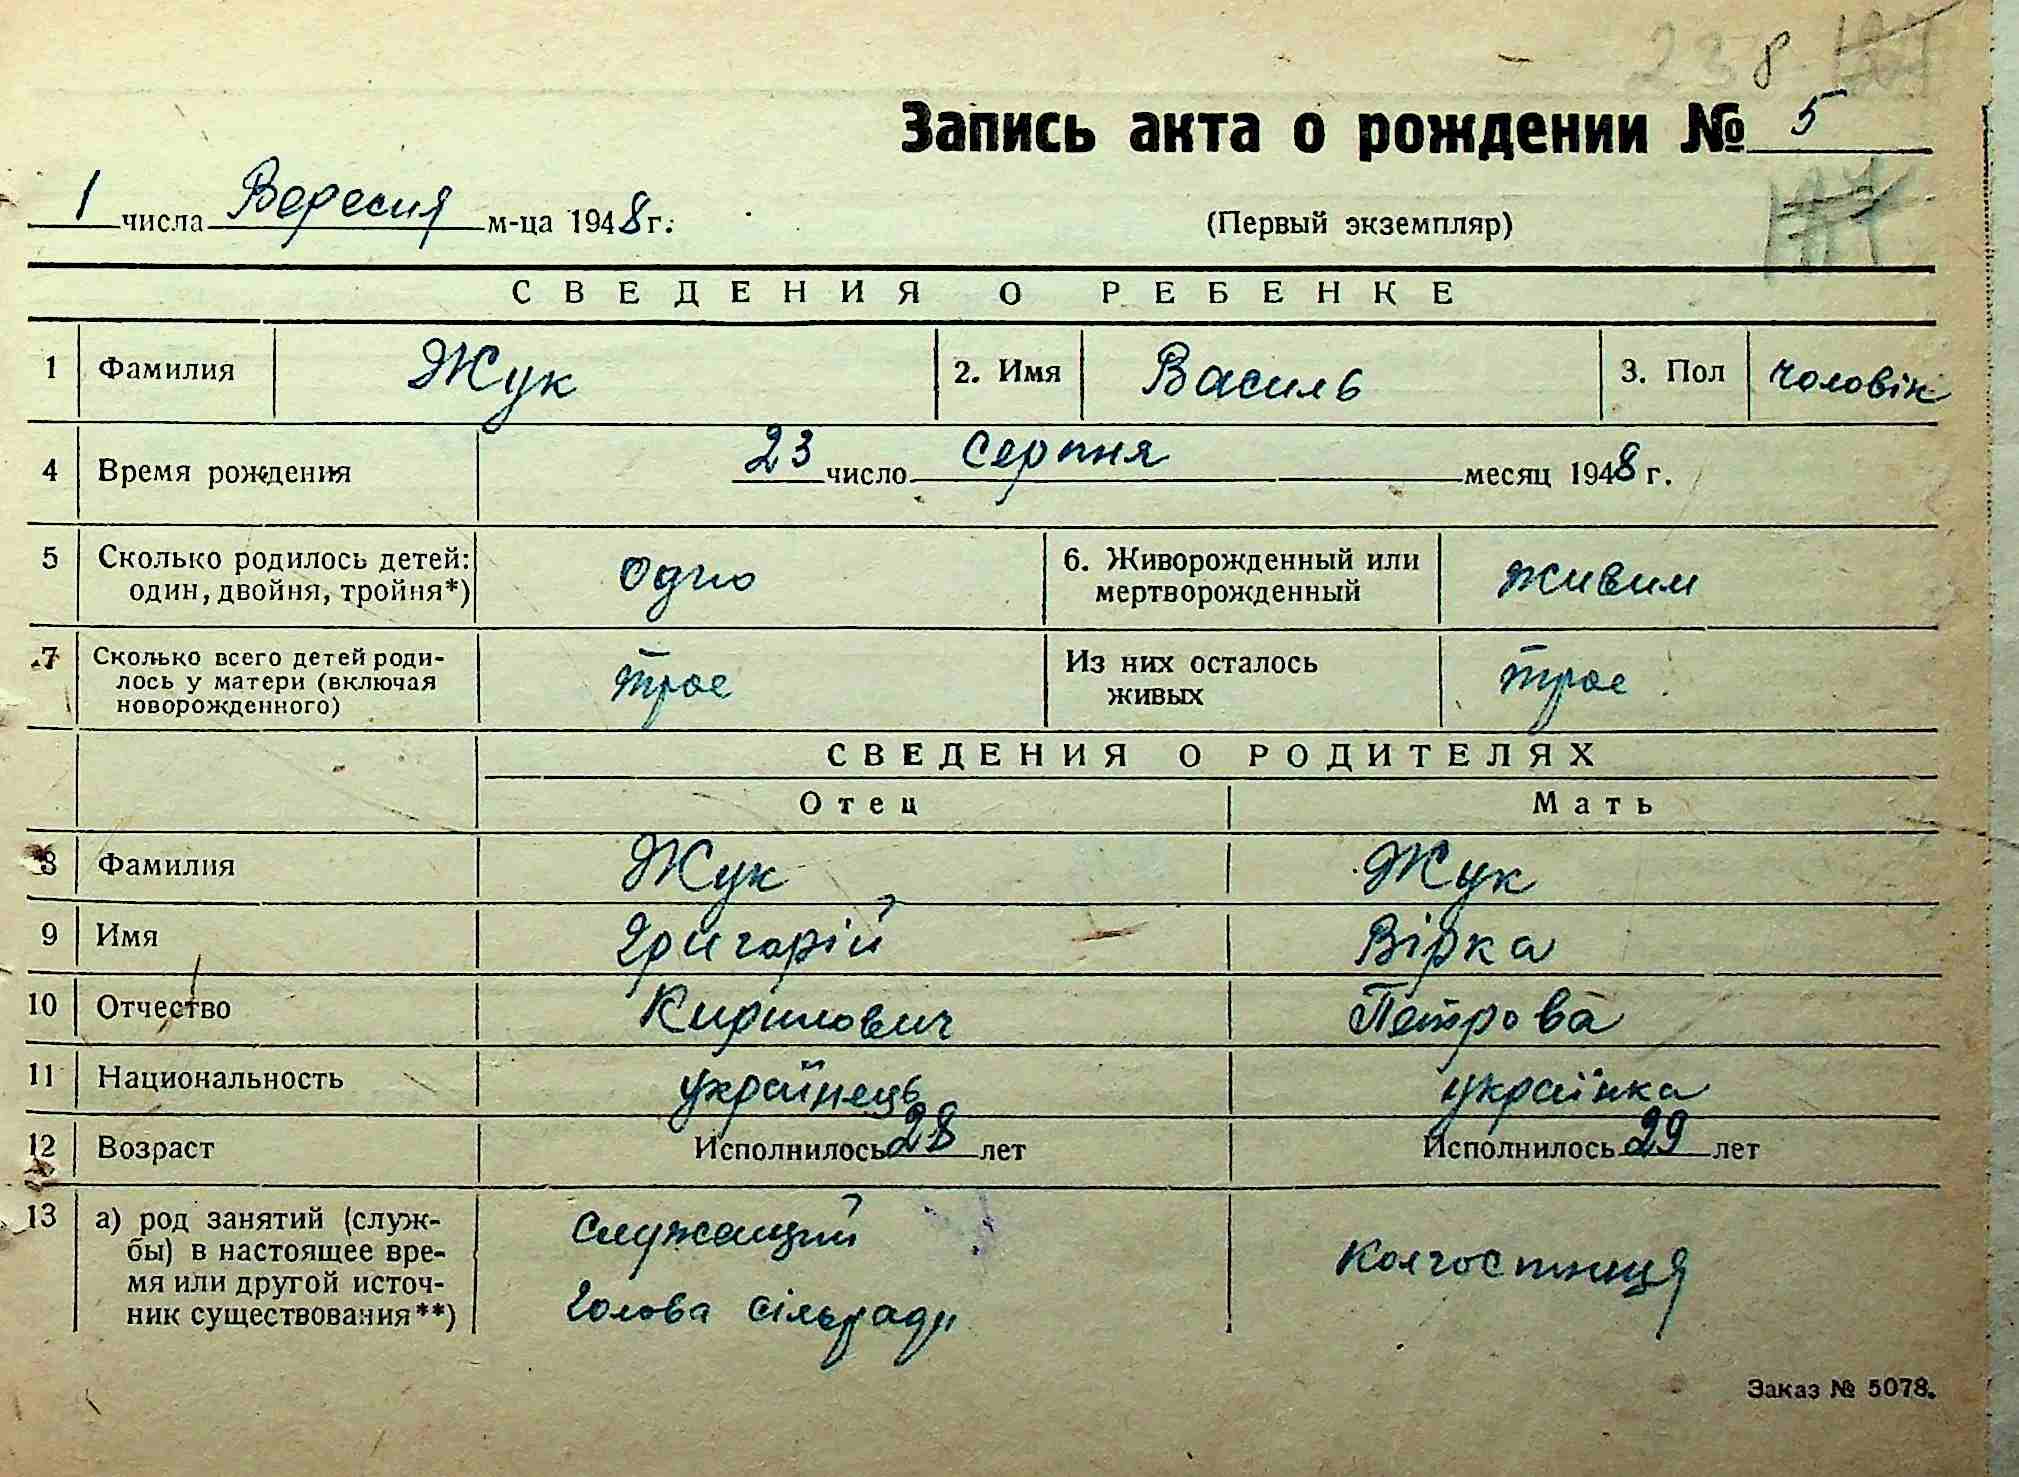 238
Запись акта о рождении № 5
1 числа Вересня м-ца 1948 г.
(Первый экземпляр)
СВЕДЕНИЯ О РЕБЕНКЕ
1 Фамилия Жук 2. Имя Василь 3. Пол чоловік
4 Время рождения 23 число серпня месяц 1948 г.
5 Сколько родилось детей: один, двойня, тройня*) одно 6. Живорожденный или мертворожденный живим
7 Сколько всего детей родилось у матери (включая новорожденного) трое Из них осталось живых трое
СВЕДЕНИЯ О РОДИТЕЛЯХ
Отец Мать
8 Фамилия Жук Жук
9 Имя Григорій Вірка
10 Отчество Кирилович Петрова
11 Национальность українець українка
12 Возраст Исполнилось 28 лет Исполнилось 29 лет
13 а) род занятий (службы) в настоящее время или другой источник существования**) служащий голова сільради колгостниця
Заказ № 5078.